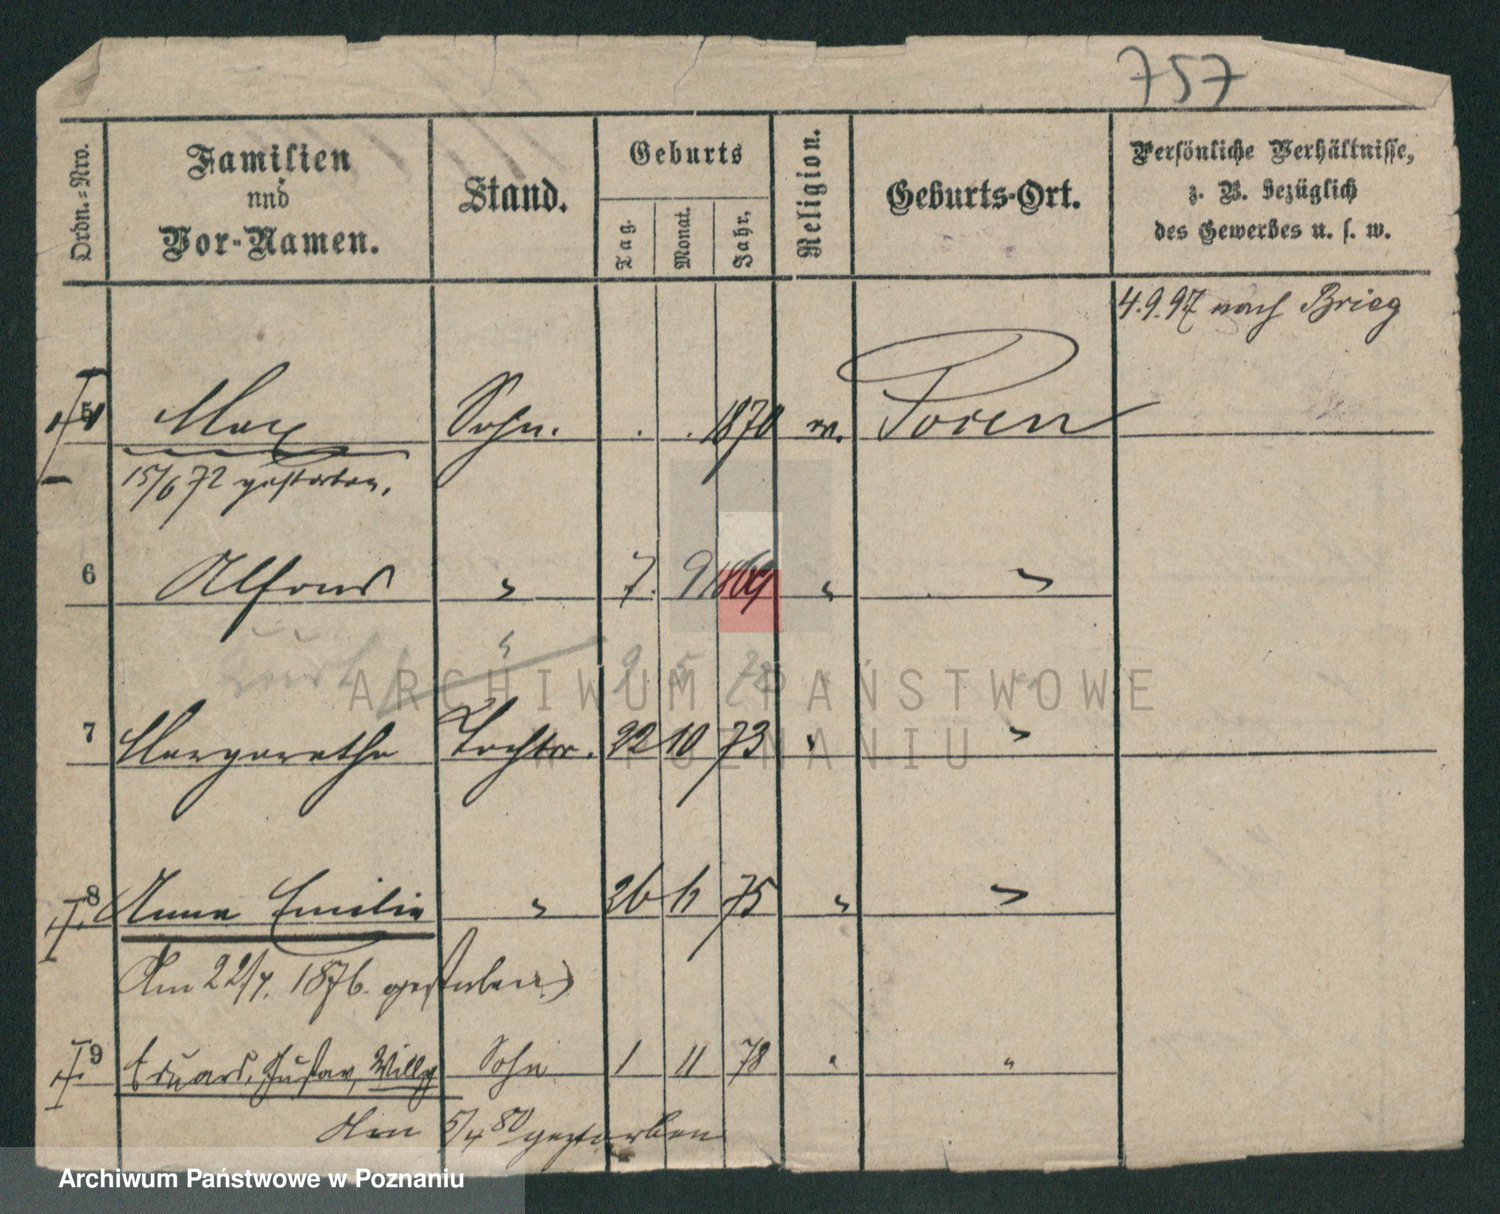 757
Ordn.=Nro.
Familien
und
Vor-Namen.
Stand.
Geburts
Tag.
Monat.
Jahr.
Religion.
Geburts-Ort.
Persönliche Verhältnisse,
z. B. bezüglich
des Gewerbes u. s. w.
4.9.97 nach Brieg
5 Max Sohn. . . 1870 Posen
15/6 72 gestorben.
6 Alfons " 7. 9 1869 " "
Curt " 9 5 72
7 Margarethe Tochter. 22 10 73 " "
8 Anna Emilie " 26 11 75 " "
Am 22/7. 1876. gestorben
9 Eduard, Gustav, Willy Sohn 1 11 78 " "
den 5/4 80 gestorben
ARCHIWUM PAŃSTWOWE
W POZNANIU
Archiwum Państwowe w Poznaniu